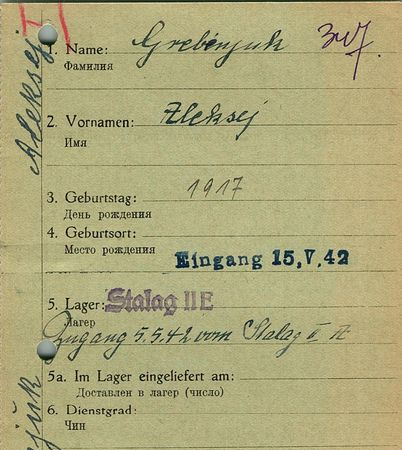 1. Name: Grebenjuk
Фамилия
2. Vornamen: Aleksej
Имя
3. Geburtstag: 1917
День рождения
4. Geburtsort:
Место рождения
Eingang 15.V.42
5. Lager: Stalag II E
Лагер
Zugang 5.5.42 vom Stalag II A
5a. Im Lager eingeliefert am:
Доставлен в лагер (число)
6. Dienstgrad:
Чин
Aleksej
juk